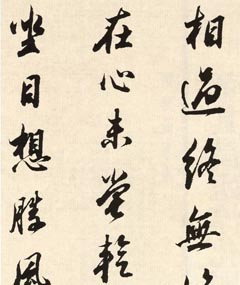 相過終無
在心未嘗
坐目想勝風